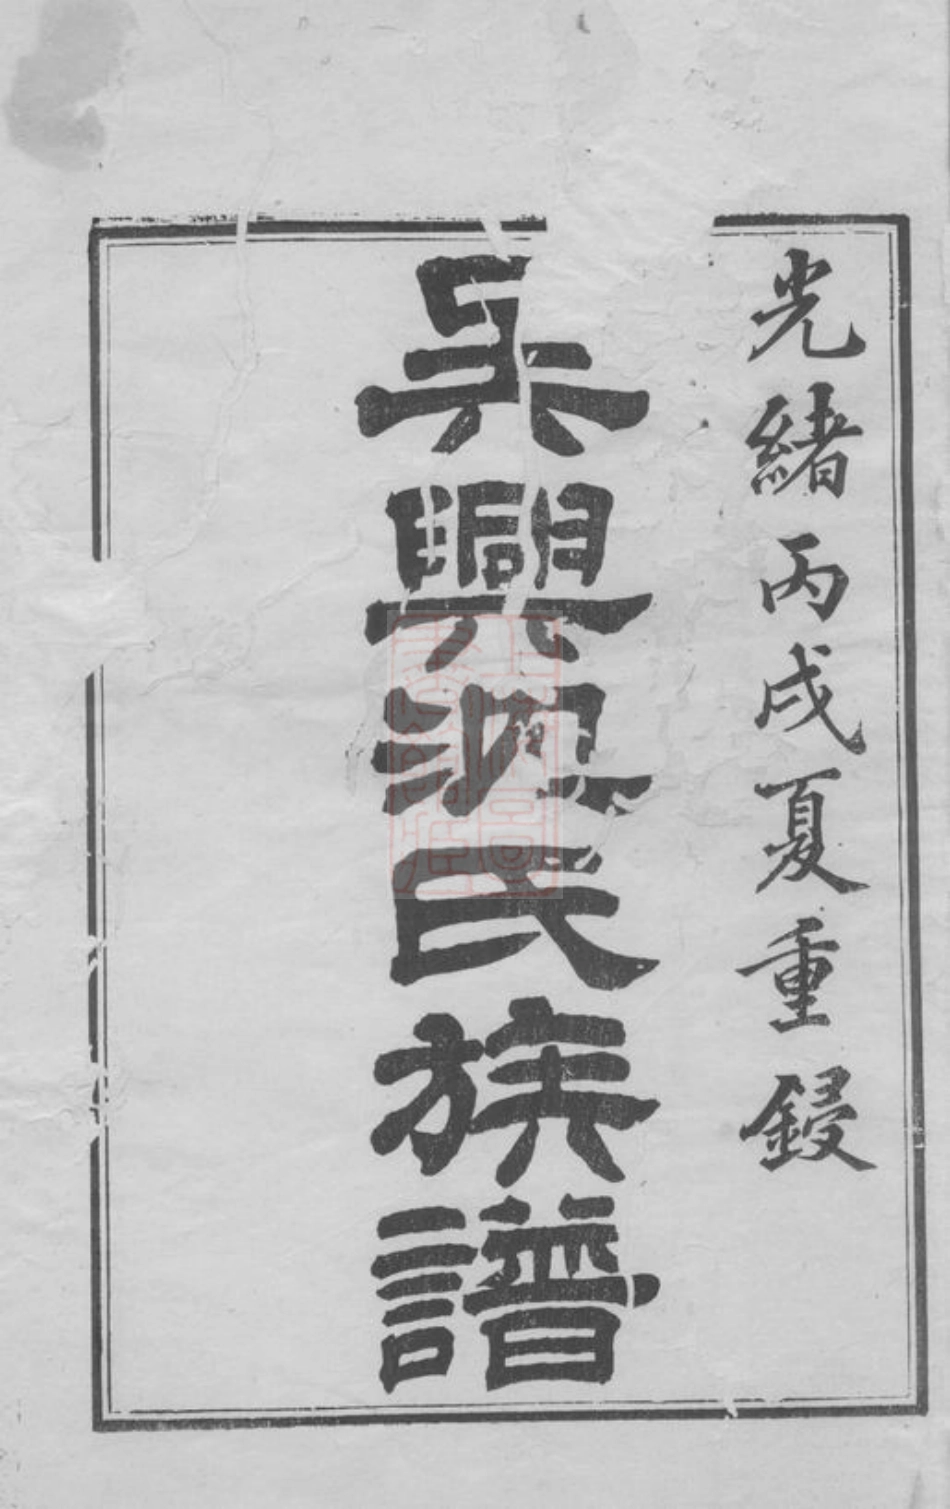 光緒丙戌夏重鋟
吳興氏族譜